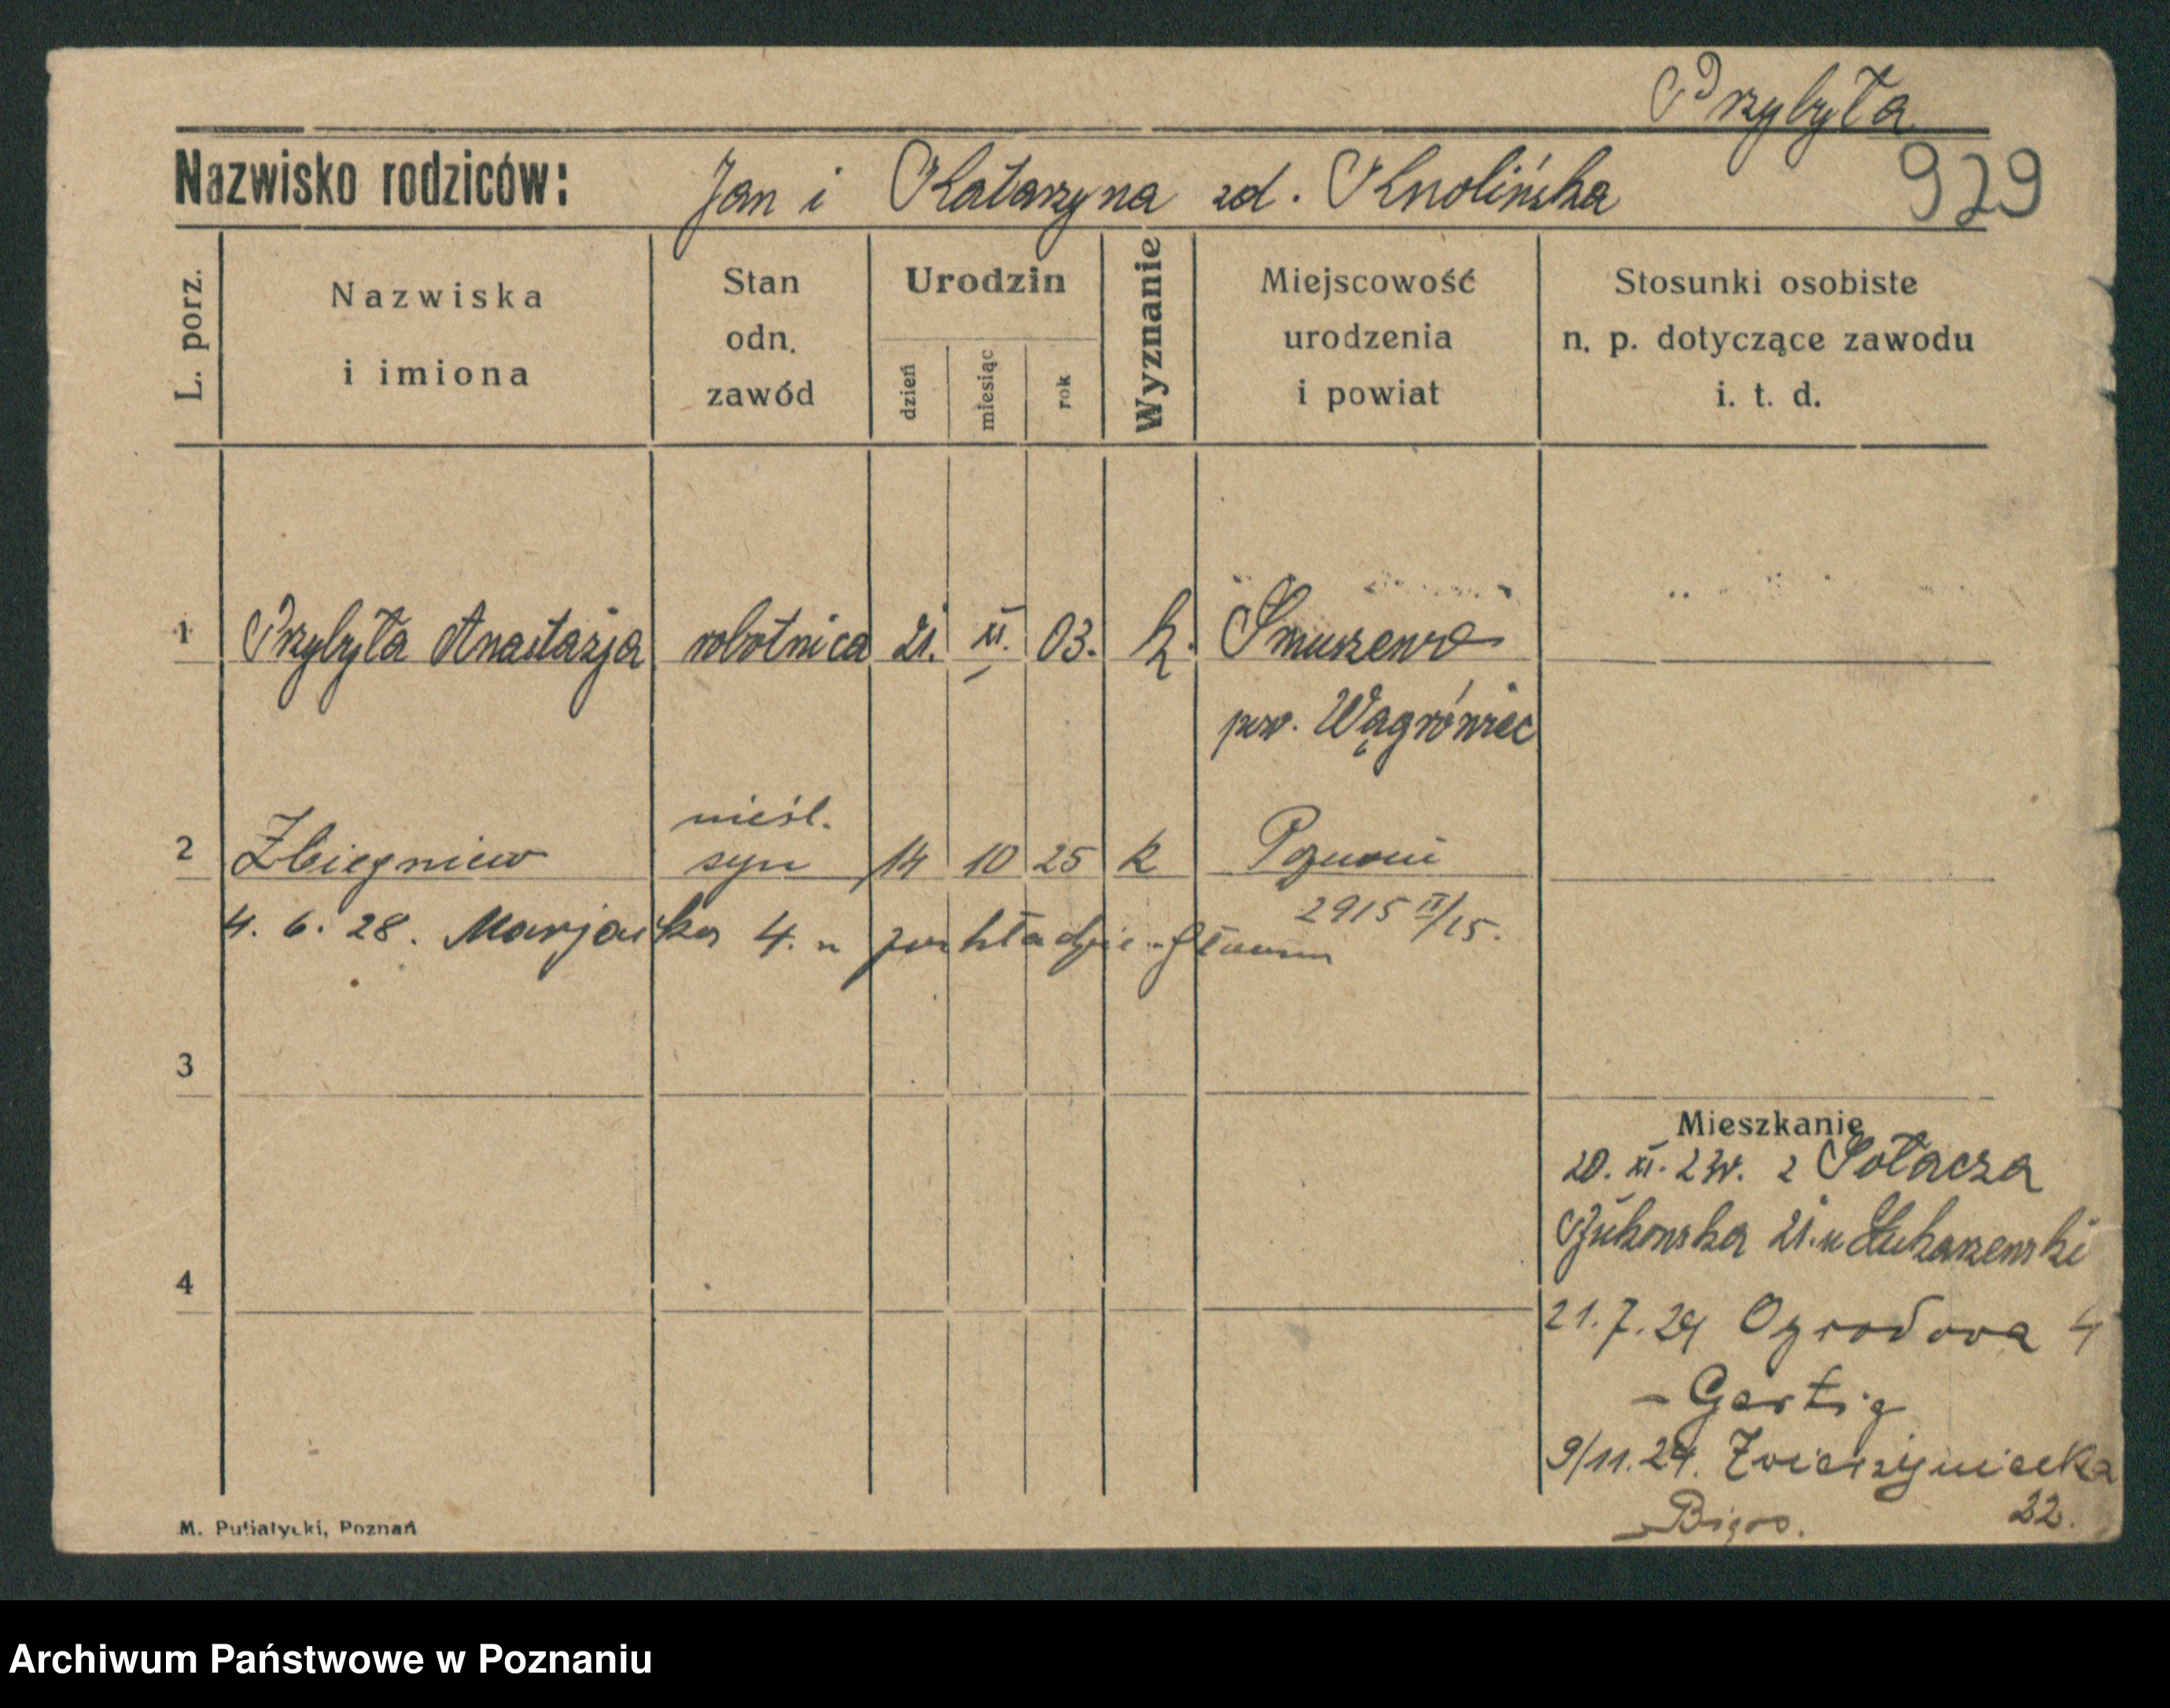 Przybyła
Nazwisko rodziców: Jan i Katarzyna zd. Knolińska 929
L. porz.
Nazwiska
i imiona
Stan
odn.
zawód
Urodzin
dzień
miesiąc
rok
Wyznanie
Miejscowość
urodzenia
i powiat
Stosunki osobiste
n. p. dotyczące zawodu
i. t. d.
1 Przybyła Anastazja robotnica 21. XI. 03. k. Smuszewo
pow. Wągrówiec
nieśl.
2 Zbiegniew syn 14 10 25 k Poznań
2915 II/15.
4. 6. 28. 4.
3
Mieszkanie
20. XI. 23r. z Sołacza
21. u Łukaszewski
4
21.7.24 Ogrodowa 4
- Gartig
9/11.24. Zwierzyniecka
22.
M. Putiatycki, Poznań
Archiwum Państwowe w Poznaniu